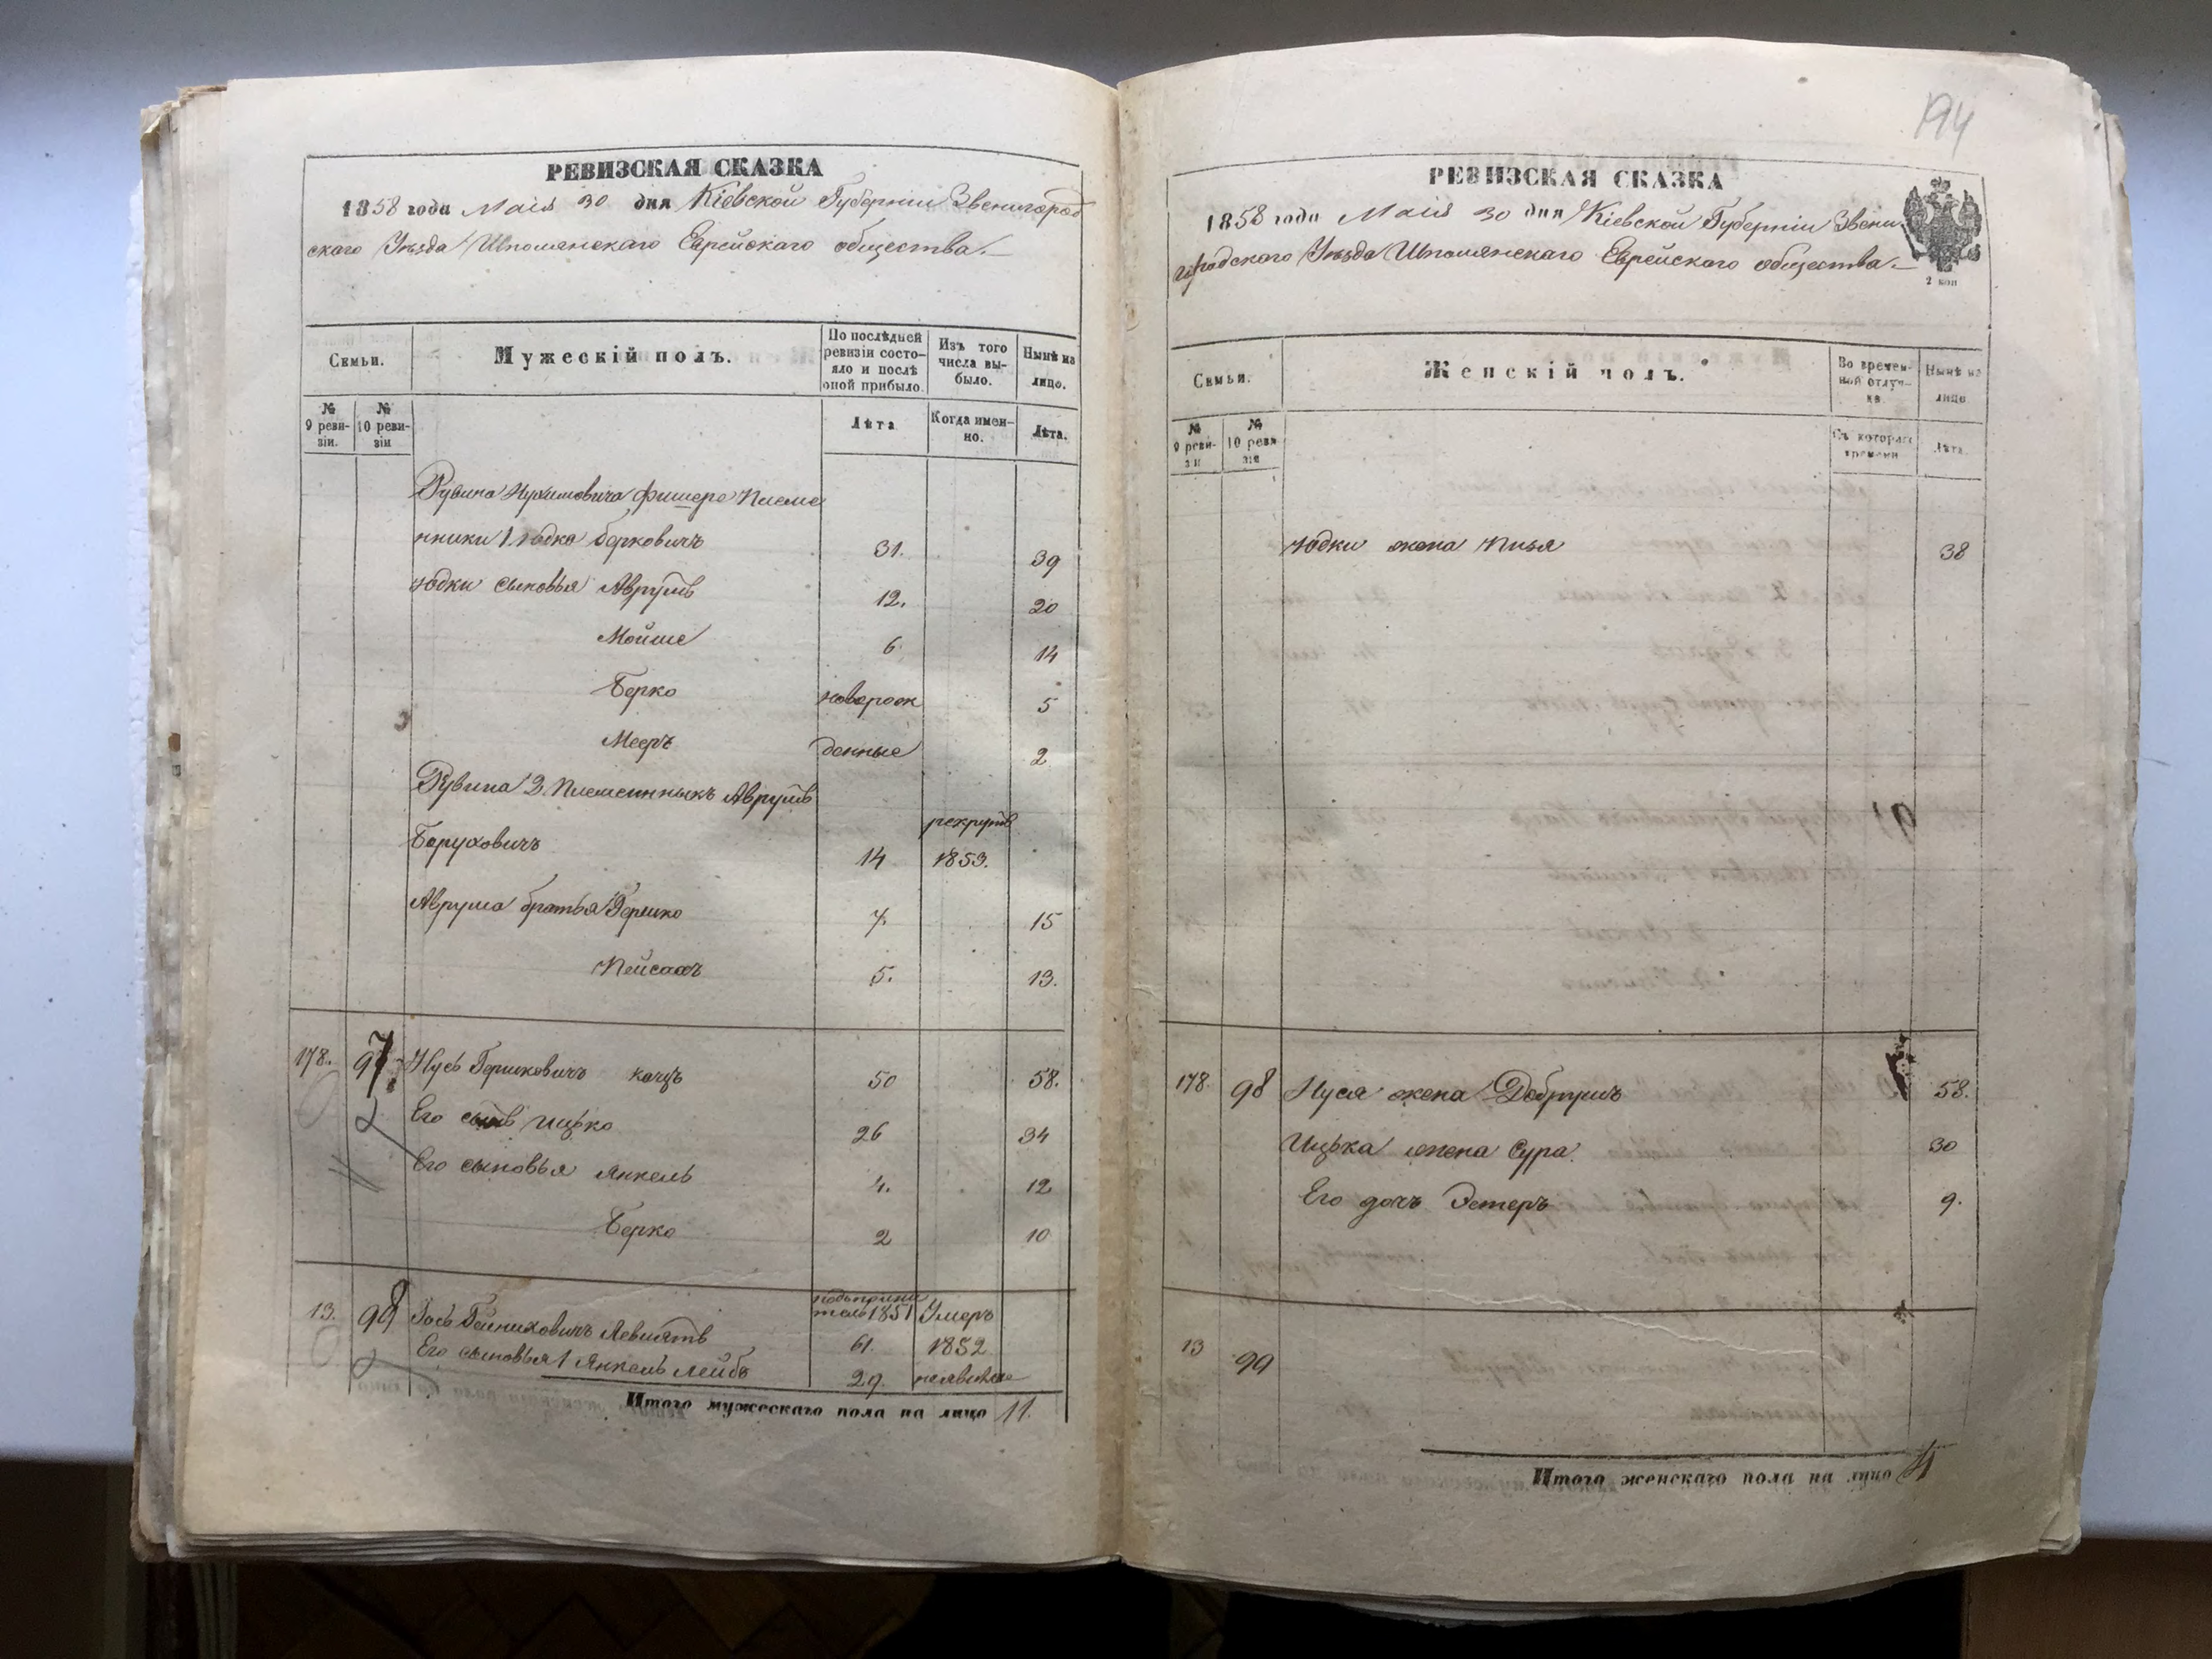 РЕВИЗСКАЯ СКАЗКА
1858 года Маія 30 дня Кіевской Губерніи Звенигород
скаго Уѣзда Шполянскаго Еврейскаго общества.
Семьи.
Мужескій полъ.
По послѣдней ревизіи состояло и послѣ оной прибыло.
Изъ того числа выбыло.
Нынѣ на лицо.
№ 9 ревизіи.
№ 10 ревизіи
Лѣта
Когда именно.
Лѣта.
Рувина Нухимовича Фишера племе
нники 1 Юдко Берковичъ 31. 39
Юдки сыновья Аврумъ 12. 20
Мойше 6 14
Берко новорож 5
Мееръ денные 2
Рувина 2. племянникъ Аврумъ
рекрутъ
Боруховичъ 14 1853.
Аврума братья Гершко 7. 15
Пейсахъ 5. 13.
178. 97. Нусь Гершковичъ кацъ 50 58.
Его сынъ Ицько 26 34
Его сыновья Янкель 4. 12
Берко 2 10
13. 98 1851 Умеръ
61. 1852
Его сыновья 1 Янкель Лейбъ 29.
Итого мужескаго пола на лицо 11.
194
РЕВИЗСКАЯ СКАЗКА
1858 года Маія 30 дня Кіевской Губерніи Звени
городского Уѣзда Шполянскаго Еврейского общества.
2 коп
Семьи.
Женскій полъ.
Во временной отлучке
Нынѣ на лицо
№ 9 ревизіи
№ 10 ревизіи
Съ котораго времени
Лѣта.
Юдки жена Песя 38
178. 98 Нуся жена Добрушъ 58.
Ицька жена Сура. 30
Его дочь Эстеръ 9.
13 99
Итого женскаго пола на лицо 4